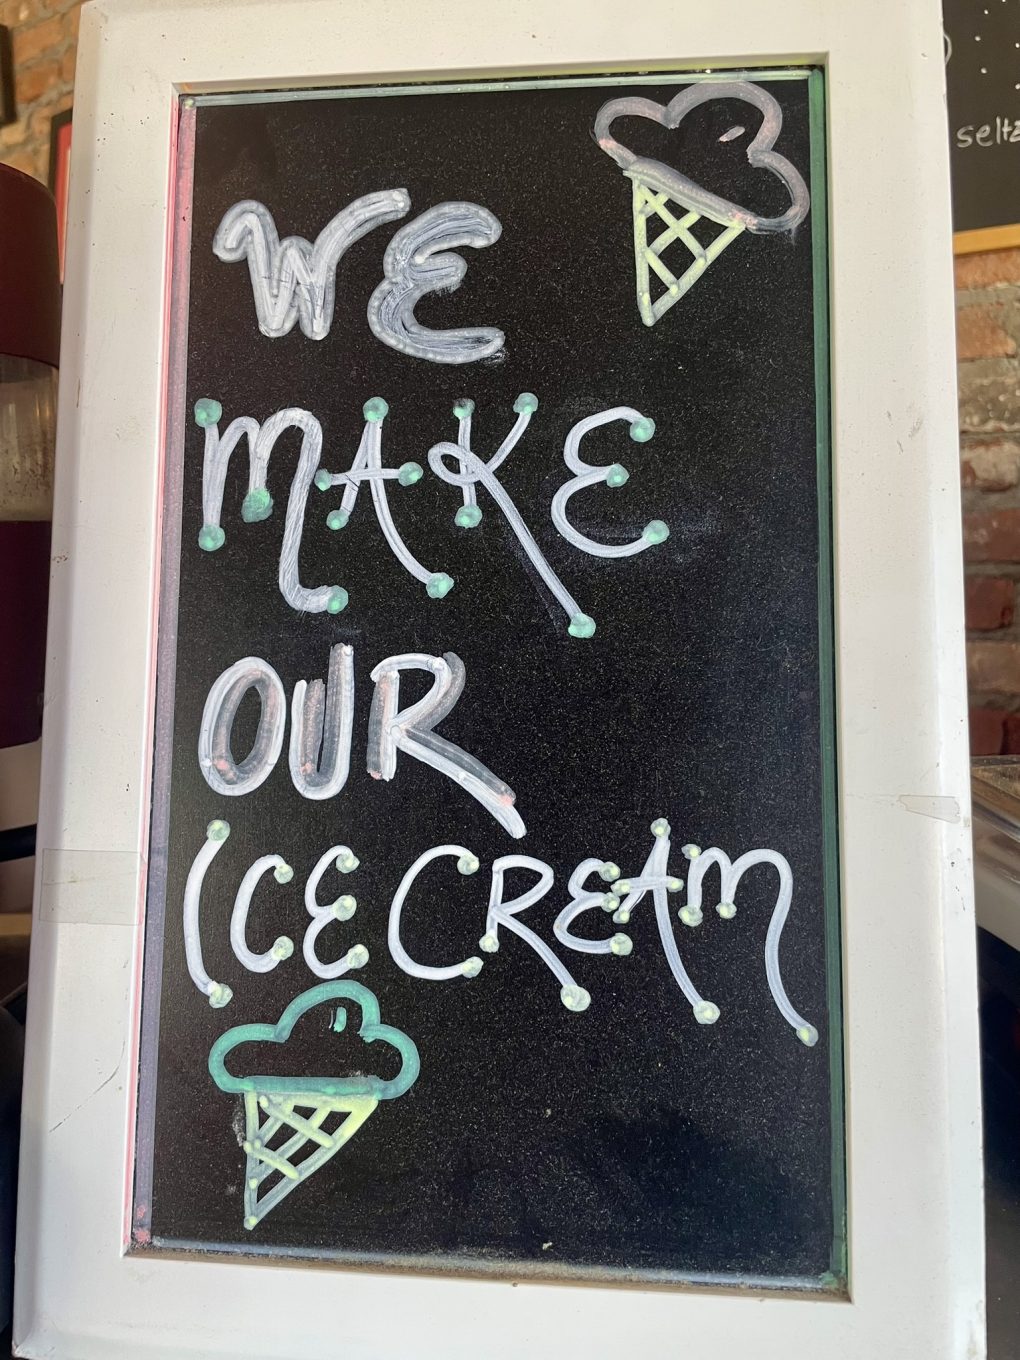 WE
MAKE
OUR
ICE CREAM